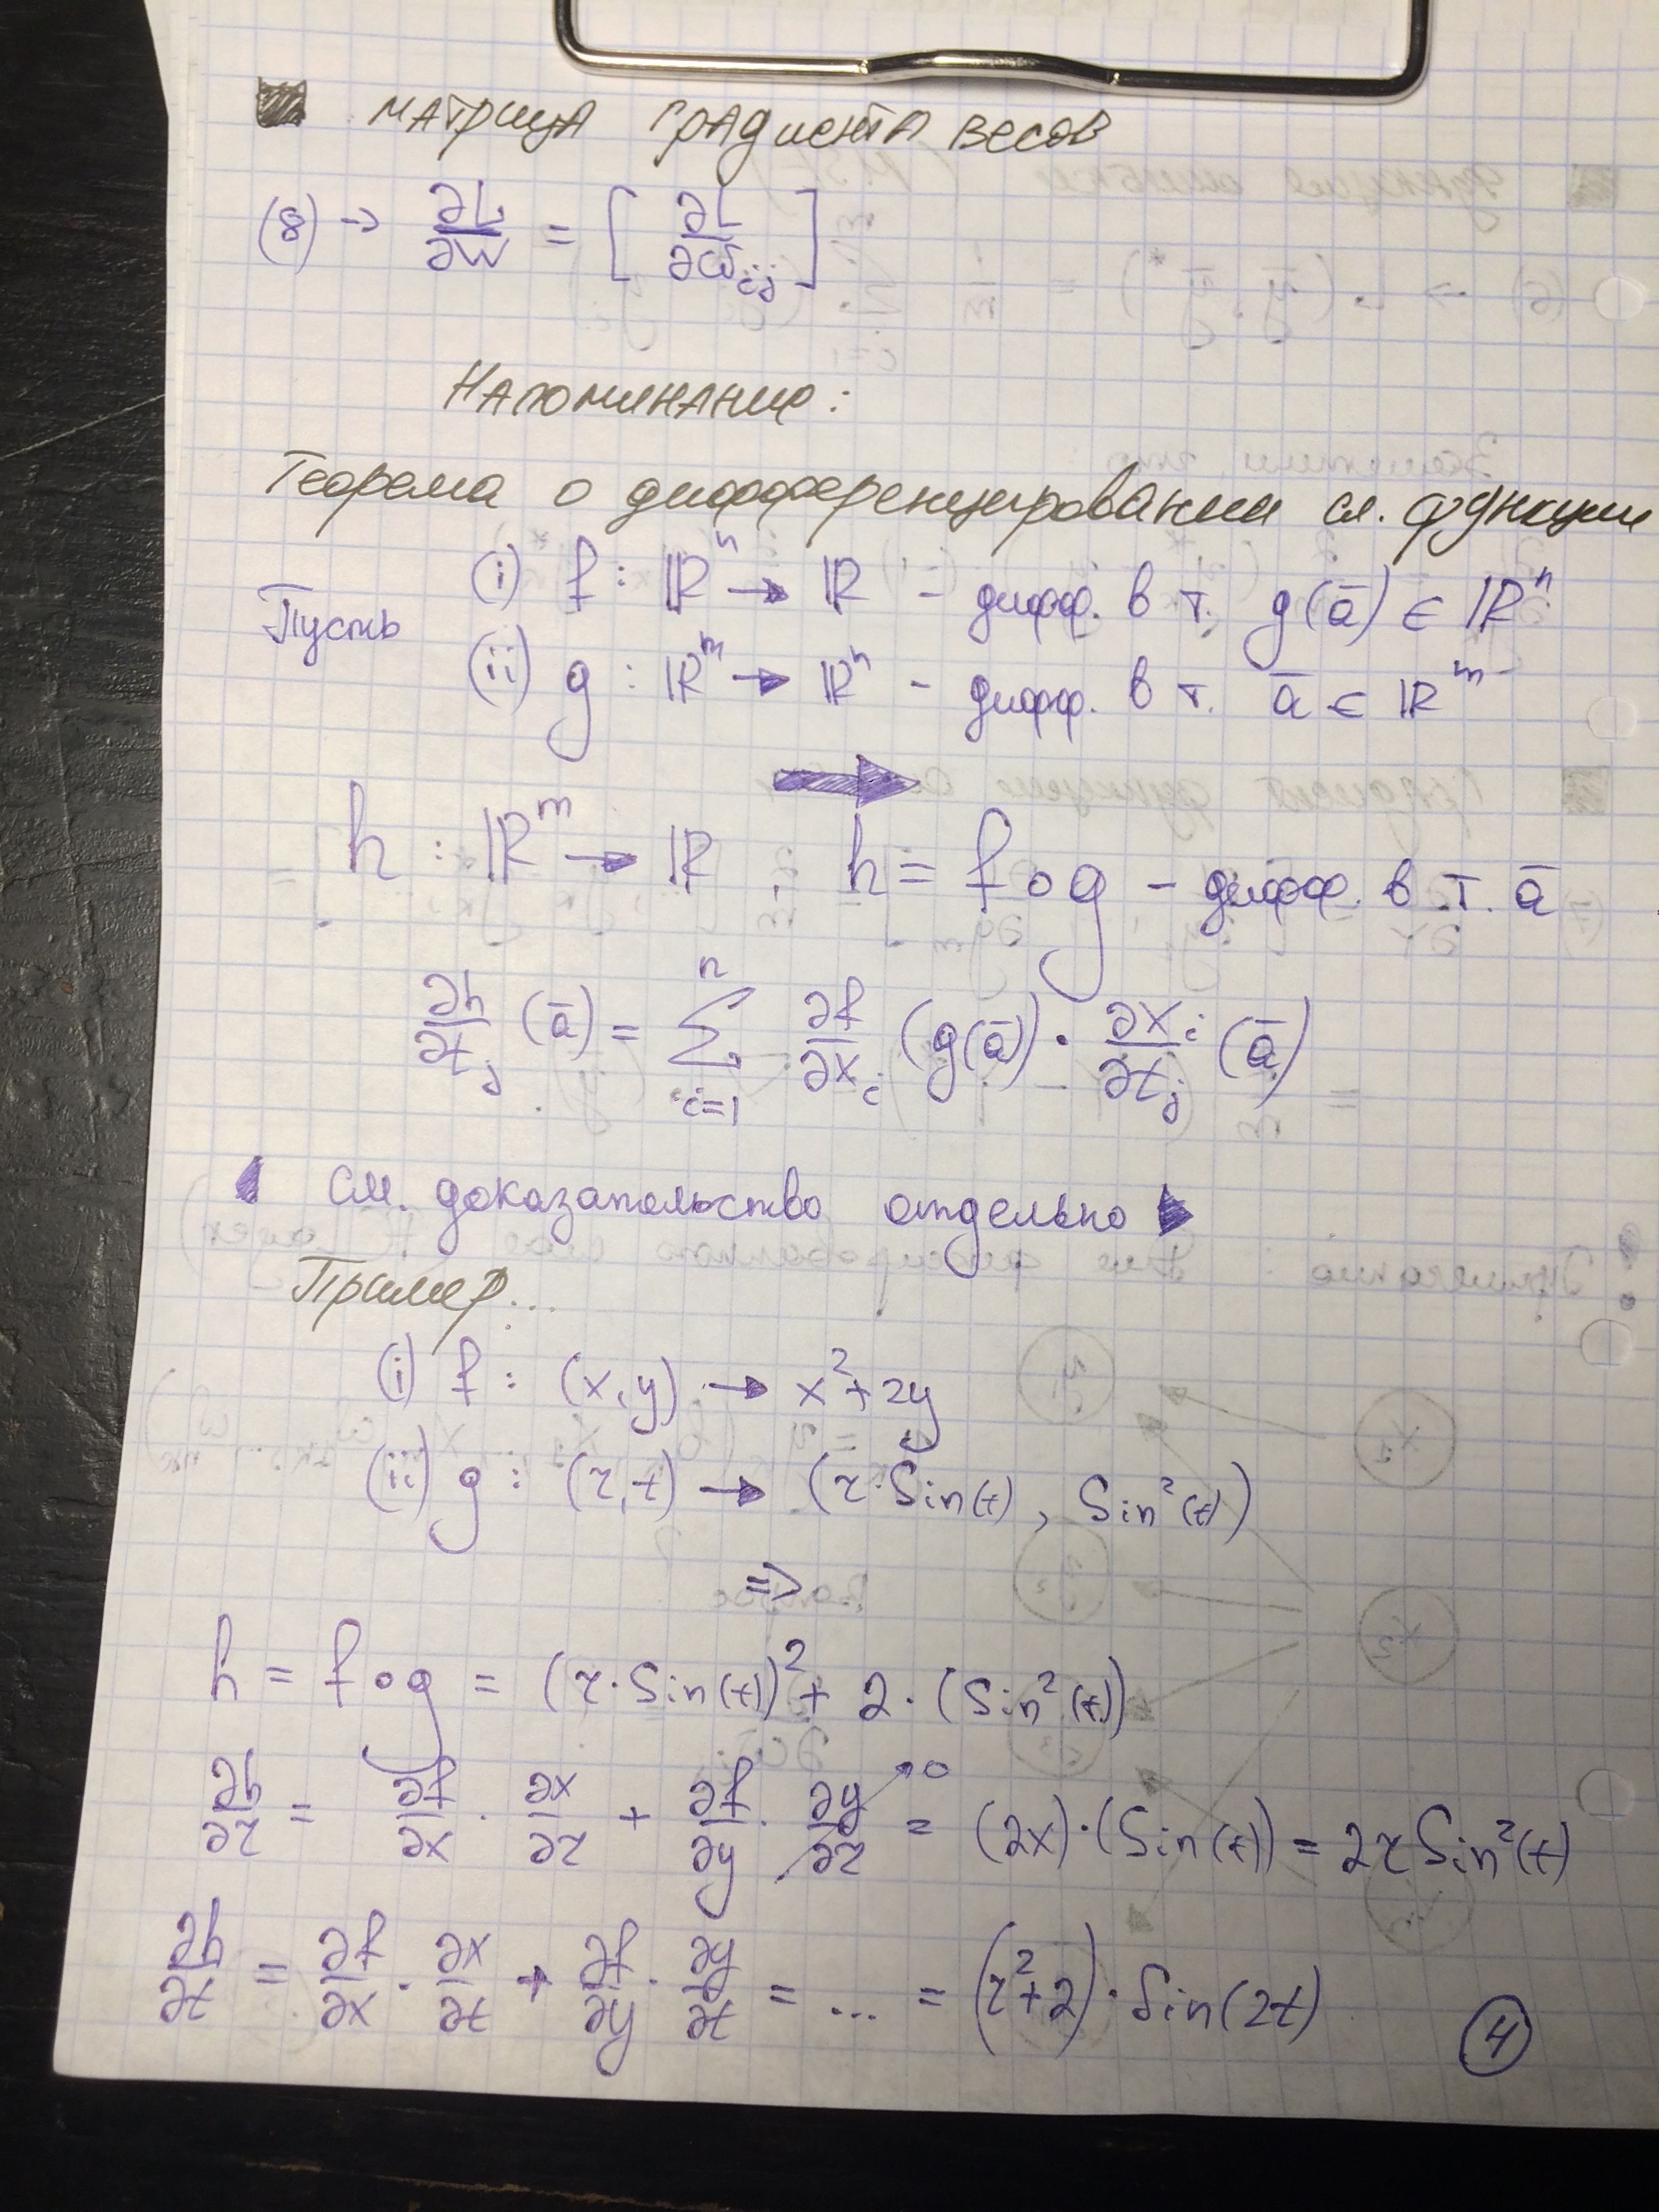 Матрица градиента весов
(8) → ∂L/∂W = [ ∂L/∂ω_ij ]
Напоминание:
Теорема о дифференцировании сл. функции
Пусть (i) f : ℝ^n → ℝ - дифф. в т. g(ā) ∈ ℝ^n
(ii) g : ℝ^m → ℝ^n - дифф. в т. ā ∈ ℝ^m
→
h : ℝ^m → ℝ , h = f ∘ g - дифф. в т. ā
∂h/∂t_j (ā) = ∑_{i=1}^{n} ∂f/∂x_i (g(ā)) · ∂x_i/∂t_j (ā)
См. доказательство отдельно
Пример...
(i) f : (x, y) → x² + 2y
(ii) g : (r, t) → (r · Sin(t), Sin²(t))
=>
h = f ∘ g = (r · Sin(t))² + 2 · (Sin²(t))
∂h/∂r = ∂f/∂x · ∂x/∂r + ∂f/∂y · ∂y/∂r → 0 = (2x) · (Sin(t)) = 2r Sin²(t)
∂h/∂t = ∂f/∂x · ∂x/∂t + ∂f/∂y · ∂y/∂t = ... = (r² + 2) · Sin(2t)
4